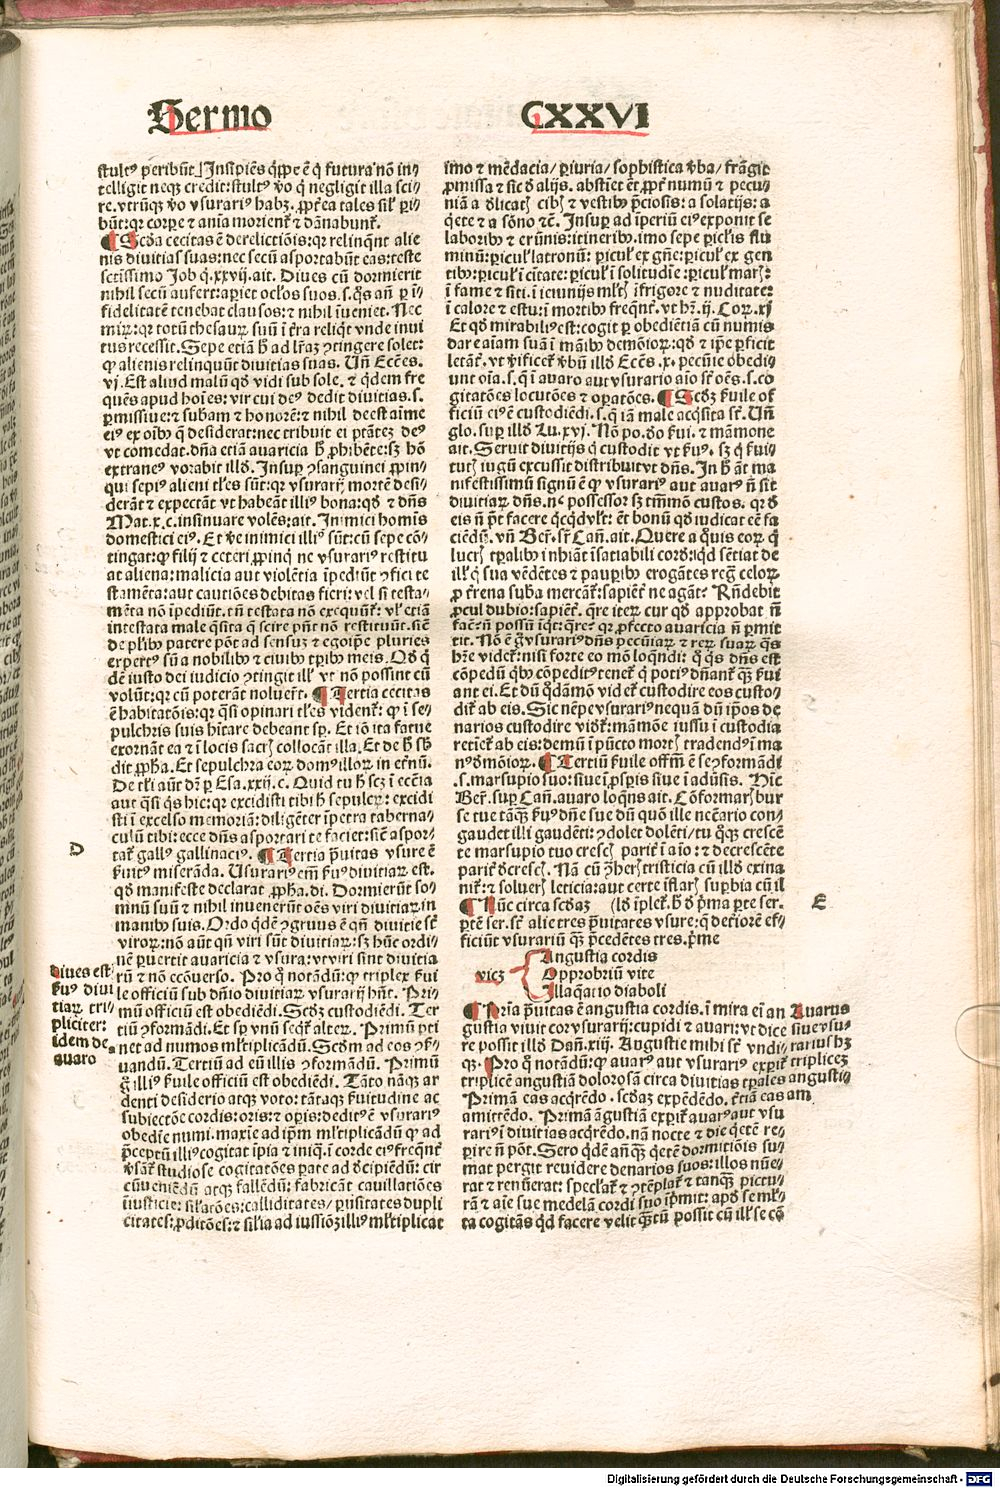 Sermo CXXVI
stultꝰ peribūt⌋ Insipiēs q̇ꝑpe ē q̇ futura nō in⸗
telligit neqꝫ credit: stultꝰ ꝟo q̇ negligit illa sci⸗
re. vtrūqꝫ ꝟo vsurariꝰ habꝫ. ꝓpt̄ea tales sil̄ ꝑi⸗
būt: qꝛ corpe ⁊ aīa morient̄ ⁊ dānabunt̄.
¶ Scd̄a cecitas ē derelictiōis: qꝛ relinq̄nt alie
nis diuitias suas: nec secū asportabūt eas: teste
sctīssimo Job q̇. xxvij. ait. Diues cū dormierit
nihil secū aufert: aꝑiet oc̄los suos. s. q̇s an̄ ꝑ ī⸗
fidelitatē tenebat clausos: ⁊ nihil īueniet. Nec
mirꝝ: qꝛ totū thesaurꝝ suū ī t̄ra reliq̇t vnde inui
tus recessit. Sepe etiā h̄ ad lr̄az ꝯtingere solet:
ꝙ alienis relinquūt diuitias suas. Un̄ Ecc̄es.
vj. Est aliud malū qd̄ vidi sub sole. ⁊ q̇dem fre
quēs apud hoīes: vir cui deꝰ dedit diuitias. s.
ꝑmissiue: ⁊ subam ⁊ honorē: ⁊ nihil deest aīme
eiꝰ ex oībꝰ q̄ desiderat: nec tribuit ei ptātez deꝰ
vt comedat. dn̄a etiā auaricia h̄ ꝓhibēte: sꝫ hō
extraneꝰ vorabit illd̄. Insuꝑ ꝯsanguinei ꝓpin⸗
qui sepiꝰ alieni tles sūt: qꝛ vsurarij mortē desi⸗
derāt ⁊ expectāt vt habeāt illiꝰ bona: qd̄ ⁊ dn̄s
Mat. x. c. insinuare volēs: ait. Inimici homīs
domestici eiꝰ. Et ꝟe inimici illiꝰ sūt: cū sepe cō⸗
tingat: ꝙ filij ⁊ ceteri ꝓpinq̇ ne vsurariꝰ restitu
at aliena: malicia aut violētia īpediūt ꝯfici te
stamēta: aut cautiōes debitas fieri: vel si testa⸗
mēta nō īpediūt. tn̄ testata nō exequūt̄: vl̓ etiā
intestata male q̄sita q̄ scire pn̄t nō restituūt. sic̄
de pl̓ibꝰ patere pōt ad sensuꝫ ⁊ egoip̄e pluries
experꝰ sū a nobilibꝰ ⁊ ciuibꝰ tꝑibꝰ meis. Qd̄ q̇
dē iusto dei iudicio ꝯtingit ill̓ vt nō possint cū
volūt: qꝛ cū poterāt noluer̄t. ¶ Tertia cecitas
ē habitatōis: qꝛ q̄si opinari tles vident̄: ꝙ ī se⸗
pulchris suis hītare debeant sꝑ. Et iō ita fatue
exornāt ea ⁊ ī locis sacꝭ collocāt illa. Et de h̄ sb̄
dit ꝓpha. Et sepulchra eoꝝ domꝰ illoꝝ in etn̄ū.
De tl̓i aūt dꝫ ꝑ Esa. xxij. c. Quid tu h̄ scꝫ ī ecc̄ia
aut q̄si q̇s hic: qꝛ excidisti tibi h̄ sepulcꝝ: excidi
sti ī excelso memoriā: diligēter īpetra taberna⸗
culū tibi: ecce dn̄s asportari te faciet: sic̄ aspor⸗
tat̄ gallꝰ gallinaciꝰ. ¶ Tertia p̄uitas vsure ē
D
ẜuitꝰ miserāda. Usurariꝰ em̄ ẜuꝰ diuitiaꝝ est.
qd̄ manifeste declarat ꝓpha. di. Dormierūt so⸗
mnū suū ⁊ nihil inuenerūt oēs viri diuitiaꝝ in
manibꝰ suis. Ordo q̇dē ꝯgruus ē qn̄ diuitie st̄
viroꝝ: nō aūt qn̄ viri sūt diuitiaꝝ: sꝫ hūc ordi⸗
nē ꝑuertit auaricia ⁊ vsura: vt viri sint diuitia
rū ⁊ nō ecōuerso. Pro q̇ notādū: ꝙ triplex ẜui
le officiū sub dn̄io diuitiaꝝ vsurarij hn̄t. Pri⸗
mū officiū est obediēdi. Scdꝫ custodiēdi. Ter
tiū ꝯformādi. Et sꝑ vnū seq̇t̄ alterꝝ. Primū ꝑti
net ad numos ml̓tiplicādū. Scdm̄ ad eos ꝯẜ⸗
uandū. Tertiū ad eū illis ꝯformādū. Primū
ḡ illiꝰ ẜuile officiū est obediēdi. Tāto nāqꝫ ar
denti desiderio atqꝫ voto: tātaqꝫ ẜuitudine ac
subiectōe cordis: oris: ⁊ oꝑis: deditꝰ ē vsurariꝰ
obedīe numi. maxīe ad ip̄m ml̓tiplicādū ꝙ ad
p̄ceptū illiꝰ cogitat īpia ⁊ iniq̇. ī corde eiꝰ freq̄nt̄
ꝟsāt̄ studiose cogitatōes parate ad d̄cipiēdū: cir
cūueniēdū atqꝫ fallēdū: fabricant cauillatiōes
īiusticie: sil̓atōes: calliditates / ꝑuersitates dupli
citates: ꝓditōes: ⁊ sil̓ia ad iussiōꝫ illiꝰ ml̓tiplicat
diues est
ẜuꝰ diui
tiaꝝ tri⸗
pliciter:
idem de
auaro
īmo ⁊ mēdacia / ꝑiuria / sophistica ꝟba / frāgit
ꝓmissa ⁊ sic d̄ alijs. abstiet ēt ꝓpt̄ numū ⁊ pecu⸗
niā a d̄licatꝭ cibꝭ ⁊ vestibꝰ p̄ciosis: a solatijs: a
q̇ete ⁊ a sōno ⁊c̄. Insuꝑ ad īperiū eiꝰ exponit se
laboribꝰ ⁊ erūnis: itineribꝰ. imo sepe ꝑiclis flu
minū: ꝑicul̓ latronū: ꝑicul̓ ex gn̄e: ꝑicul̓ ex gen
tibꝰ: ꝑicul̓ ī cītate: ꝑicul̓ ī solitudīe: ꝑicul̓ marꝭ:
ī fame ⁊ siti. ī ieiunijs ml̓tꝭ ī frigore ⁊ nuditate:
ī calore ⁊ estu: ī mortibꝰ freq̄nt̄. vt hr̄. ij. Coꝝ. xj
Et qd̄ mirabiliꝰ est: cogit ꝑ obediētiā cū numis
dare aīam suā ī manibꝰ demōioꝝ: qd̄ ⁊ ip̄e ꝑficit
letāt̄. vt ꝟificet̄ ꝟbū illd̄ Ecc̄es. x. pecunie obedi⸗
unt oīa. s. q̄ ī auaro aut vsurario aīo st̄ oēs. s. co
gitatōes locutōes ⁊ oꝑatōes. ¶ Scdꝫ ẜuile of
ficiū eiꝰ ē custodiēdi. s. q̄ iā male acq̄sita st̄. Un̄
glo. suꝑ illd̄ Lu. xvj. Nō po. d̄o ẜui. ⁊ māmone
ait. Seruit diuitijs q̇ custodit vt ẜuꝰ. sꝫ q̇ ẜui⸗
tutꝭ iugū excussit distribuit vt dn̄s. In h̄ āt ma
nifestissimū signū ē ꝙ vsurariꝰ aut auarꝰ n̄ sit
diuitiaꝝ dn̄s. nec possessor sꝫ tm̄mō custos. qꝛ d̄
eis n̄ pt̄ facere q̇cqd̄ vl̓t: ēt bonū qd̄ iudicat eē fa
ciēdū. vn̄ Ber̄. sr̄ Can̄. ait. Quere a q̇uis eoꝝ q̇
lucrꝭ tꝑalibꝰ inhiāt īsatiabili cord̄: iqd̄ sētiat de
ill̓ q̇ sua vēdētes ⁊ pauꝑibꝰ erogātes reḡ celoꝝ
ꝓ tr̄ena suba mercāt̄: sapiēt̄ ne agāt? Rn̄debit
ꝓcul dubio: sapiēt̄. q̄re iteꝝ cur qd̄ approbat n̄
faēt̄? n̄ possū īq̇t: q̄re? qꝛ ꝓfecto auaricia n̄ ꝑmit
tit. Nō ē ḡ vsurariꝰ dn̄s pecūiaꝝ ⁊ reꝝ suaꝝ q̄s
hr̄e videt̄: nisi forte eo mō loq̄ndi: q̇ q̇s dn̄s est
cōpedū q̇bꝰ cōpeditꝰ tenet̄ q̇ potiꝰ dn̄ant̄ qꝫ̄ ẜui
ant ei. Et dū q̇dāmō videt̄ custodire eos custo⸗
dit̄ ab eis. Sic nēpe vsurariꝰ nequā dū ip̄os de
narios custodire vid̄t̄: māmōe iussu ī custodia
retiet̄ ab eis: demū ī pūcto mortꝭ tradendꝰ ī ma
nꝰ d̄mōioꝝ. ¶ Tertiū ẜuile offm̄ ē seꝯformādi
.s. marsupio suo: siue ī ꝓspis siue ī aduīs. Hīc
Ber̄. suꝑ Can̄. auaro loq̄ns ait. Cōformarꝭ bur
se tue tāqꝫ̄ ẜuꝰ dn̄e sue dū quō ille necēario con⸗
gaudet illi gaudēti: ꝯdolet dolēti / tu q̊qꝫ crescē
te marsupio tuo crescꝭ parit̄ ī aīo: ⁊ decrescēte
parit̄ d̄crescꝭ. Nā cū ꝯt̄herꝭ tristicia cū illd̄ exina
nit̄: ⁊ soluerꝭ leticia: aut certe īflarꝭ suꝑbia cū il
¶ Nūc circa scdaꝫ (ld̄ īplet̄. h̄ d̄ p̄ma ꝑte ser.
E
ꝑtē ser. st̄ alie tres p̄uitates vsure: q̄ deriorē ef⸗
ficiūt vsurariū qꝫ̄ p̄cedētes tres. p̄me
vicꝫ
Angustia cordis
Opprobriū vite
Illaq̄atio diaboli
¶ Pria p̄uitas ē angustia cordis. ī mira ei an
gustia viuit cor vsurarij: cupidi ⁊ auari: vt dice
re possit illd̄ Dan̄. xiij. Augustie mihi st̄ vndi⸗
qꝫ. Pro q̇ notādū: ꝙ auarꝰ aut vsurariꝰ exꝑit̄
triplicē angustiā dolorosā circa diuitias tꝑales
Primā eas acq̇rēdo. scdaꝫ expēdēdo. t̄tiā eas
amittēdo. Primā āgustiā exꝑit̄ auarꝰ aut vsu
rariꝰ ī diuitias acq̇rēdo. nā nocte ⁊ die q̇etē re⸗
ꝑire n̄ pōt. Sero q̇dē an̄qꝫ̄ q̇etē dormitiōis su⸗
mat pergit reuidere denarios suos: illos nūe⸗
rat ⁊ renūerat: speclat̄ ⁊ ꝯtēplat̄ ⁊ tanqꝫ̄ pictu⸗
rā ⁊ aīe sue medelā cordi suo īp̄mit: apd̄ se ml̓⸗
ta cogitās q̇d facere velit qꝫ̄tū possit cū ill̓ se cō
Auarus
siue vsu⸗
rarius hꝫ
triplicez
angusti⸗
am
Digitalisierung gefördert durch die Deutsche Forschungsgemeinschaft - DFG